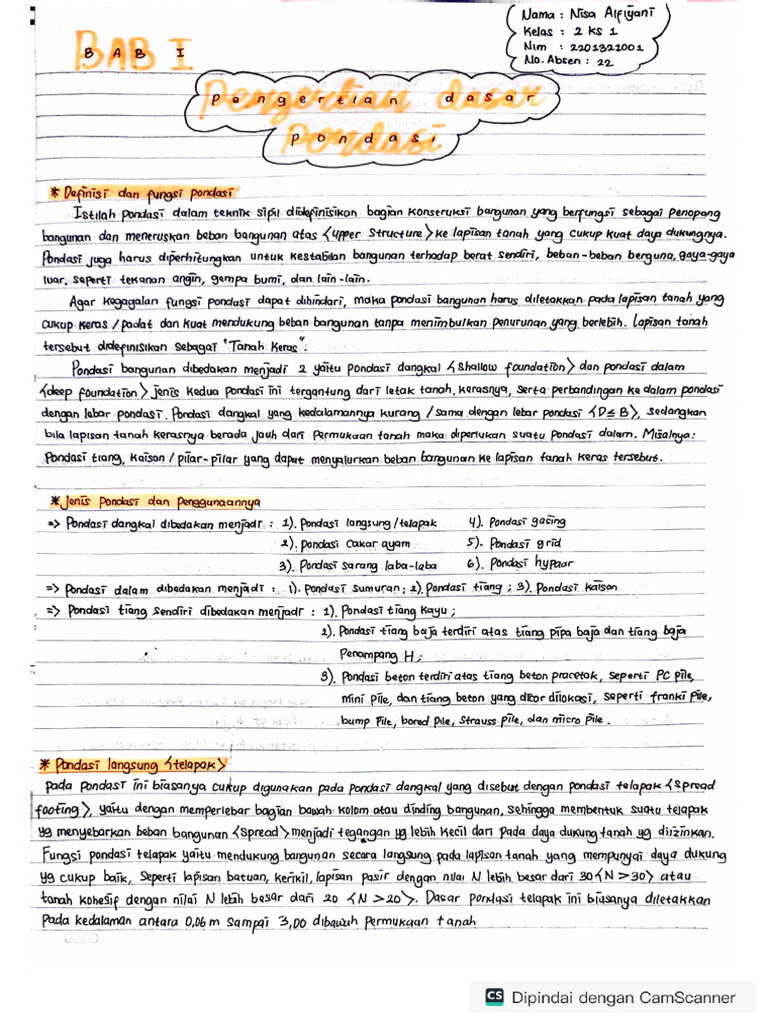 Nama : Nisa Alfiyani
Kelas : 2 KS 1
Nim : 2201321001
No. Absen : 22
BAB I
Pengertian dasar
pondasi
* Definisi dan fungsi pondasi
Istilah pondasi dalam teknik sipil didefinisikon bagian konstruksi bangunan yang berfungsi sebagai penopang
bangunan dan meneruskan beban bangunan atas <upper structure> ke lapisan tanah yang cukup kuat daya dukungnya.
Pondasi juga harus diperhitungkan untuk kestabilan bangunan terhadap berat sendiri, beban-beban berguna, gaya-gaya
luar, seperti tekanan angin, gempa bumi, dan lain-lain.
Agar kegagalan fungsi pondasi dapat dihindari, maka pondasi bangunan harus diletakkan pada lapisan tanah yang
cukup keras / padat dan kuat mendukung beban bangunan tanpa menimbulkan penurunan yang berlebih. Lapisan tanah
tersebut didefinisikan sebagai "Tanah Keras".
Pondasi bangunan dibedakan menjadi 2 yaitu pondasi dangkal <shallow foundation> dan pondasi dalam
<deep foundation> jenis kedua pondasi ini tergantung dari letak tanah, kerasnya, serta perbandingan ke dalam pondasi
dengan lebar pondasi. Pondasi dangkal yang kedalamannya kurang / sama dengan lebar pondasi <D ≤ B>, sedangkan
bila lapisan tanah kerasnya berada jauh dari permukaan tanah maka diperlukan suatu pondasi dalam. Misalnya:
Pondasi tiang, kaison / pilar-pilar yang dapat menyalurkan beban bangunan ke lapisan tanah keras tersebut.
* Jenis pondasi dan penggunaannya
=> Pondasi dangkal dibedakan menjadi : 1). Pondasi langsung / telapak 4). Pondasi gasing
2). Pondasi cakar ayam 5). Pondasi grid
3). Pondasi sarang laba-laba 6). Pondasi hypaar
=> Pondasi dalam dibedakan menjadi : 1). Pondasi sumuran; 2). Pondasi tiang ; 3). Pondasi kaison
=> Pondasi tiang sendiri dibedakan menjadi : 1). Pondasi tiang kayu ;
2). Pondasi tiang baja terdiri atas tiang pipa baja dan tiang baja
Penampang H ;
3). Pondasi beton terdiri atas tiang beton pracetak, seperti PC pile,
mini pile, dan tiang beton yang dicor dilokasi, seperti franki pile,
bump pile, bored pile, Strauss pile, dan micro pile.
* Pondasi langsung <telapak>
Pada pondasi ini biasanya cukup digunakan pada pondasi dangkal yang disebut dengan pondasi telapak <spread
footing>, yaitu dengan memperlebar bagian bawah kolom atau dinding bangunan, sehingga membentuk suatu telapak
yg menyebarkan beban bangunan <spread> menjadi tegangan yg lebih kecil dari pada daya dukung tanah yg diizinkan.
Fungsi pondasi telapak yaitu mendukung bangunan secara langsung pada lapisan tanah yang mempunyai daya dukung
yg cukup baik, seperti lapisan batuan, kerikil, lapisan pasir dengan nilai N lebih besar dari 30 <N > 30> atau
tanah kohesif dengan nilai N lebih besar dari 20 <N > 20>. Dasar pondasi telapak ini biasanya diletakkan
pada kedalaman antara 0,06 m sampai 3,00 dibawah permukaan tanah
CS Dipindai dengan CamScanner